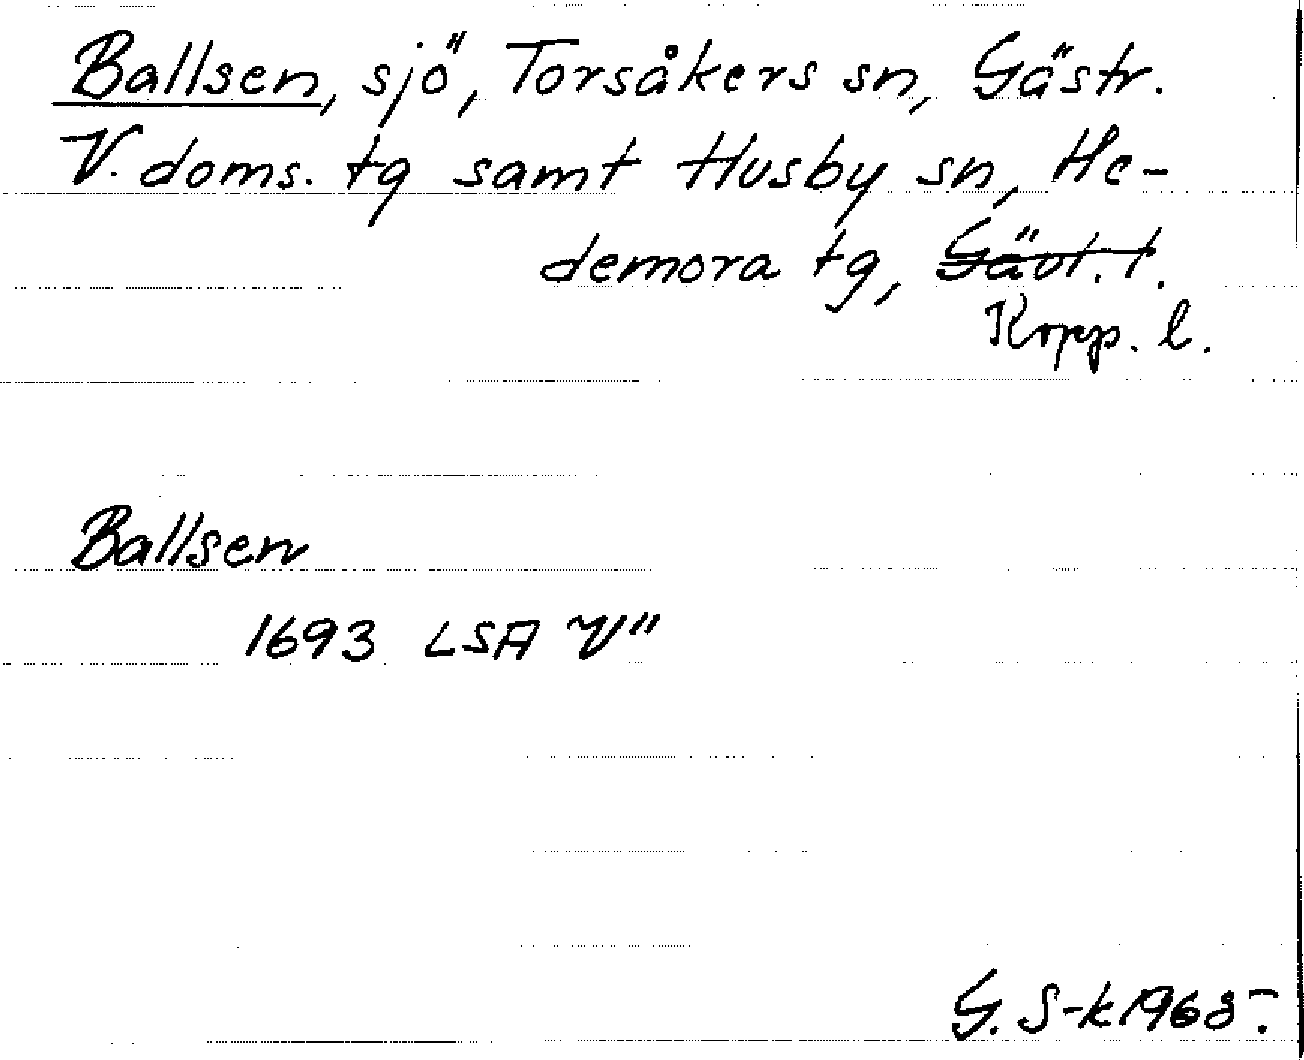 Ballsen, sjö, Torsåkers sn, Gästr.
V. doms. tg samt Husby sn, He-
demora tg, Gävl. l.
Kopp. l.
Ballsen
1693 LSA V"
G. S-k 1968